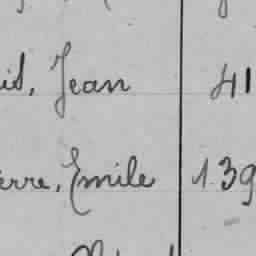 id, Jean 41
erre, Emile 139